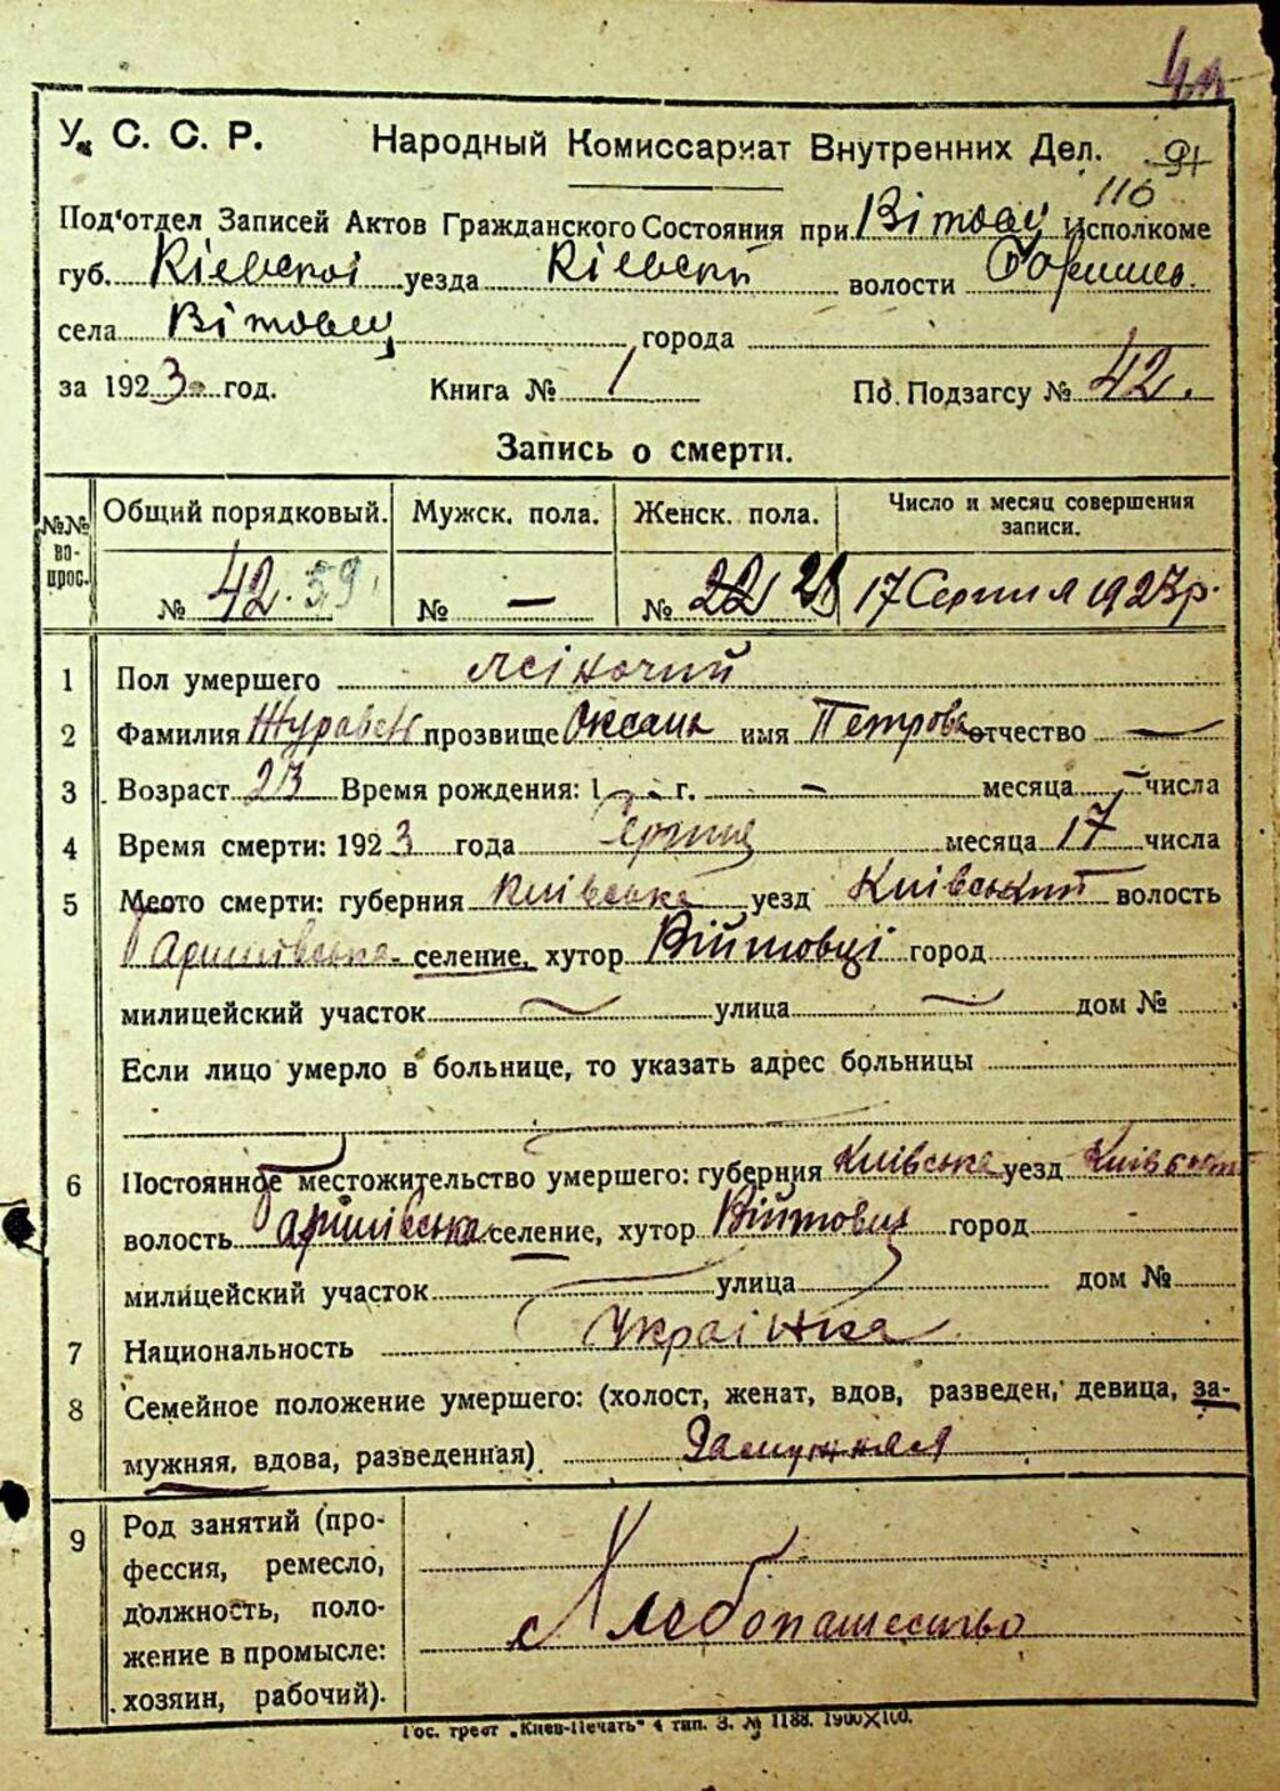 У. С. С. Р. Народный Комиссариат Внутренних Дел. 91
116
Под'отдел Записей Актов Гражданского Состояния при Вітовец Исполкоме
губ. Кіевскоі уезда Кіевскій волости
села Вітовец города
за 1923 год. Книга № 1 По. Подзагсу № 42.
Запись о смерти.
№№ во-прос. Общий порядковый. Мужск. пола. Женск. пола. Число и месяц совершения записи.
№ 42. 59 № — № 22 17 Серпня 1923 р.
1 Пол умершего Жіночий
2 Фамилия прозвище Оксана имя Петрова отчество —
3 Возраст 23 Время рождения: 1 - г. - месяца - числа
4 Время смерти: 1923 года Серпня месяца 17 числа
5 Место смерти: губерния Київська уезд Київський волость
селение, хутор Війтовці город
милицейский участок — улица — дом №
Если лицо умерло в больнице, то указать адрес больницы
6 Постоянное местожительство умершего: губерния Київська уезд Київський
волость селение, хутор Війтовці город
милицейский участок улица дом №
7 Национальность Українка
8 Семейное положение умершего: (холост, женат, вдов, разведен, девица, за-
мужняя, вдова, разведенная) Замужняя
9 Род занятий (про-
фессия, ремесло,
должность, поло-
жение в промысле:
хозяин, рабочий).
Хлебопашество
Гос. трест „Киев-Печать" 4 тип. З. № 1188. 1900×100.